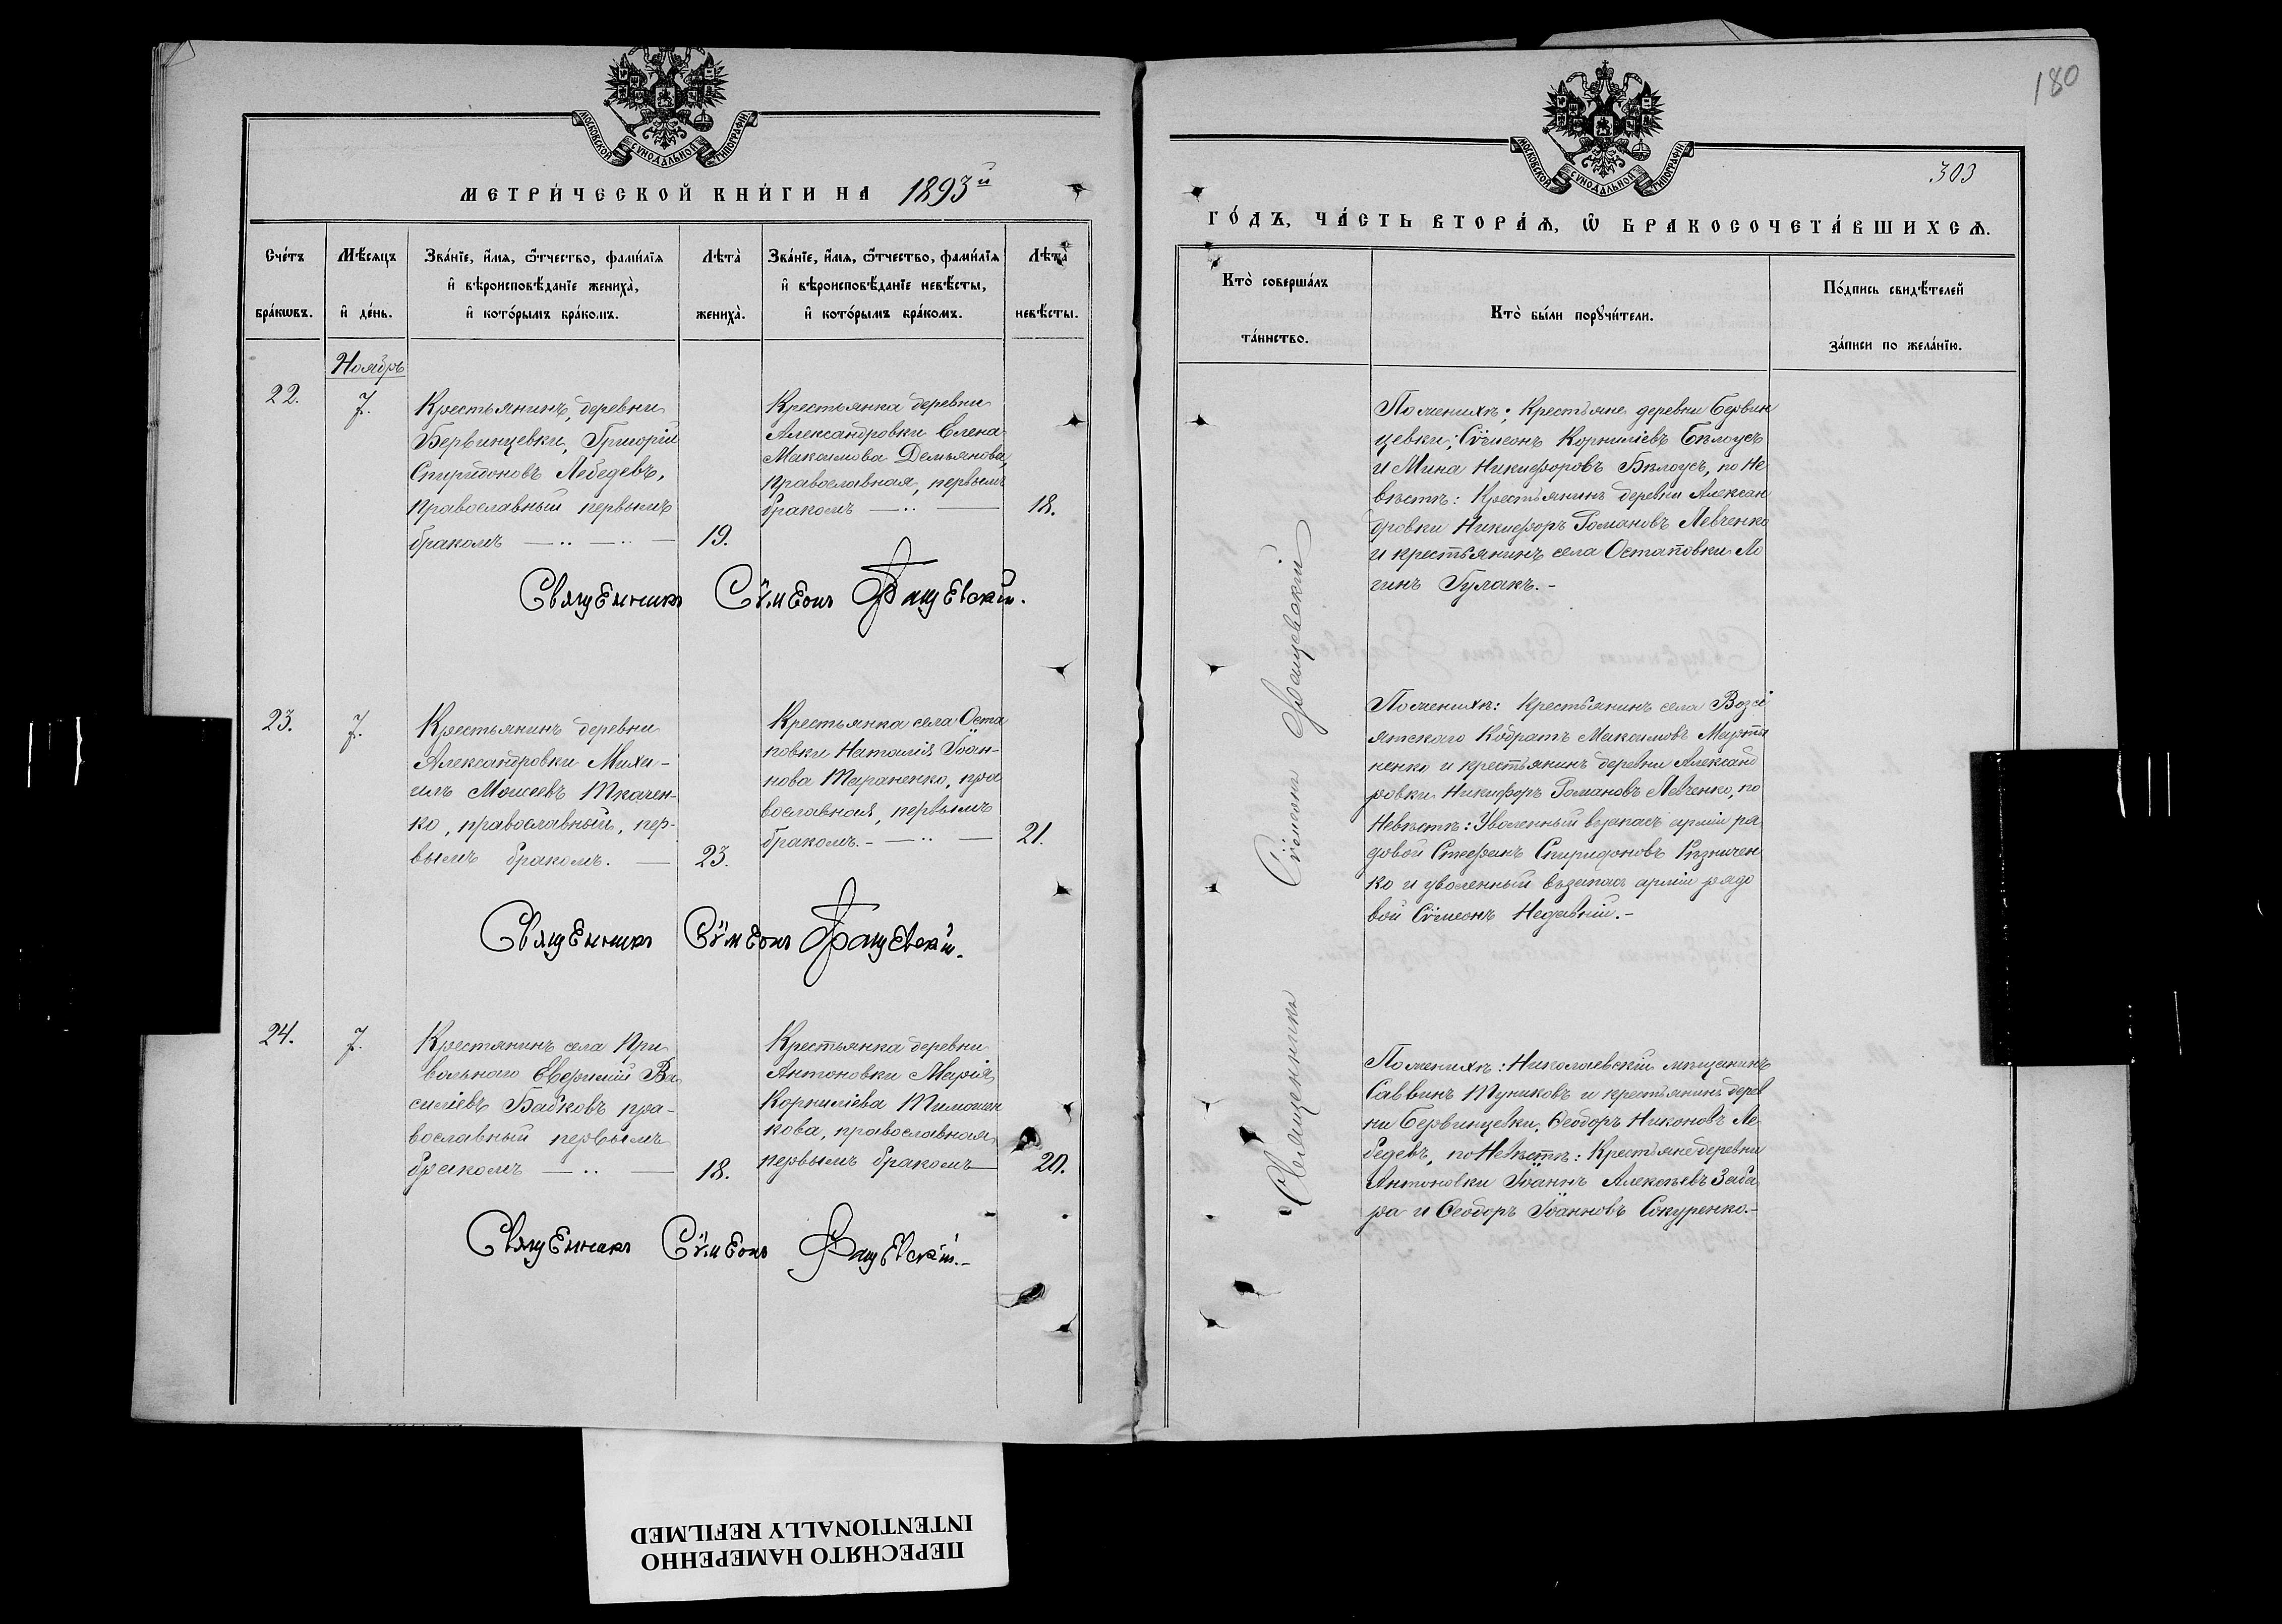 180
303
МОСКОВСКОЙ СѴНОДАЛЬНОЙ ТИПОГРАФІИ
МЕТРИ́ЧЕСКОЙ КНИ́ГИ НА 1893й
Сче́тъ бра́кѡвъ.
Мѣ́сяцъ и҆ де́нь.
Зва́нїе, и҆́мѧ, ѻ҆́тчество, фами́лїѧ
и҆ вѣроисповѣ́данїе жениха̀,
и҆ кото́рымъ бра́комъ.
Лѣта̀ жениха̀.
Зва́нїе, и҆́мѧ, ѻ҆́тчество, фами́лїѧ
и҆ вѣроисповѣ́данїе невѣ́сты,
и҆ кото́рымъ бра́комъ.
Лѣта̀ невѣ́сты.
Ноябрь
22.
7.
Крестьянинъ деревни
Бервинцевки, Григорій
Спиридоновъ Лебедевъ,
православный первымъ
бракомъ
19.
Крестьянка деревни
Александровки Елена
Максимова Демьянова,
православная, первымъ
бракомъ
18.
Священникъ Сѵмеонъ Фащевскій.
23.
7.
Крестьянинъ деревни
Александровки Миха-
илъ Моисеевъ Ткачен-
ко, православный, пер-
вымъ бракомъ.
23.
Крестьянка села Оста
повки Наталія Іоан-
нова Тараненко, пра
вославная, первымъ
бракомъ.
21.
Священникъ Сѵмеонъ Фащевскій.
24.
7.
Крестянинъ села При
вольнаго Евфимій Ва
силіевъ Бабковъ пра-
вославный первымъ
бракомъ
18.
Крестьянка деревни
Антоновки Марія
Корниліева Тимошен
кова, православная,
первымъ бракомъ
20.
Священникъ Сѵмеонъ Фащевскій.
МОСКОВСКОЙ СѴНОДАЛЬНОЙ ТИПОГРАФІИ
ГО́ДЪ, ЧА́СТЬ ВТОРА́Ѧ, Ѽ БРАКОСОЧЕТА́ВШИХСѦ.
Кто̀ соверша́лъ
та́инство.
Кто̀ бы́ли порꙋчи́тели.
По́дпись свидѣ́телей
за́писи по жела́нїю.
Священникъ Сѵмеонъ Фащевскій
По женихѣ: Крестьяне деревни Бервин
цевки: Сѵмеонъ Корниліевъ Бѣлоусъ
и Мина Никифоровъ Бѣлоусъ, по не
вѣстѣ: Крестьянинъ деревни Алексан
дровки Никифоръ Романовъ Левченко
и крестьянинъ села Остаповки Ло
гинъ Гулакъ.-
По женихѣ: Крестьянинъ села Возсі
ятскаго Кодратъ Максимовъ Марты
ненко и крестьянинъ деревни Александ
ровки Никифоръ Романовъ Левченко, по
Невѣстѣ: Уволенный възапасъ арміи ря
довой Стефанъ Спиридоновъ Рѣзничен
ко и уволенный възапасъ арміи рядо
вой Сѵмеонъ Недавній.-
По женихѣ: Николаевскій мѣщанинъ
Саввинъ Туниковъ и крестьянинъ дерев
ни Бервинцевки, Ѳеодоръ Никоновъ Ле-
бедевъ, по Невѣстѣ: Крестьяне деревни
Антоновки Іоаннъ Алексѣевъ Заба
ра и Ѳеодоръ Іоанновъ Сокуренко.-
ПЕРЕСНЯТО НАМЕРЕННО
INTENTIONALLY REFILMED